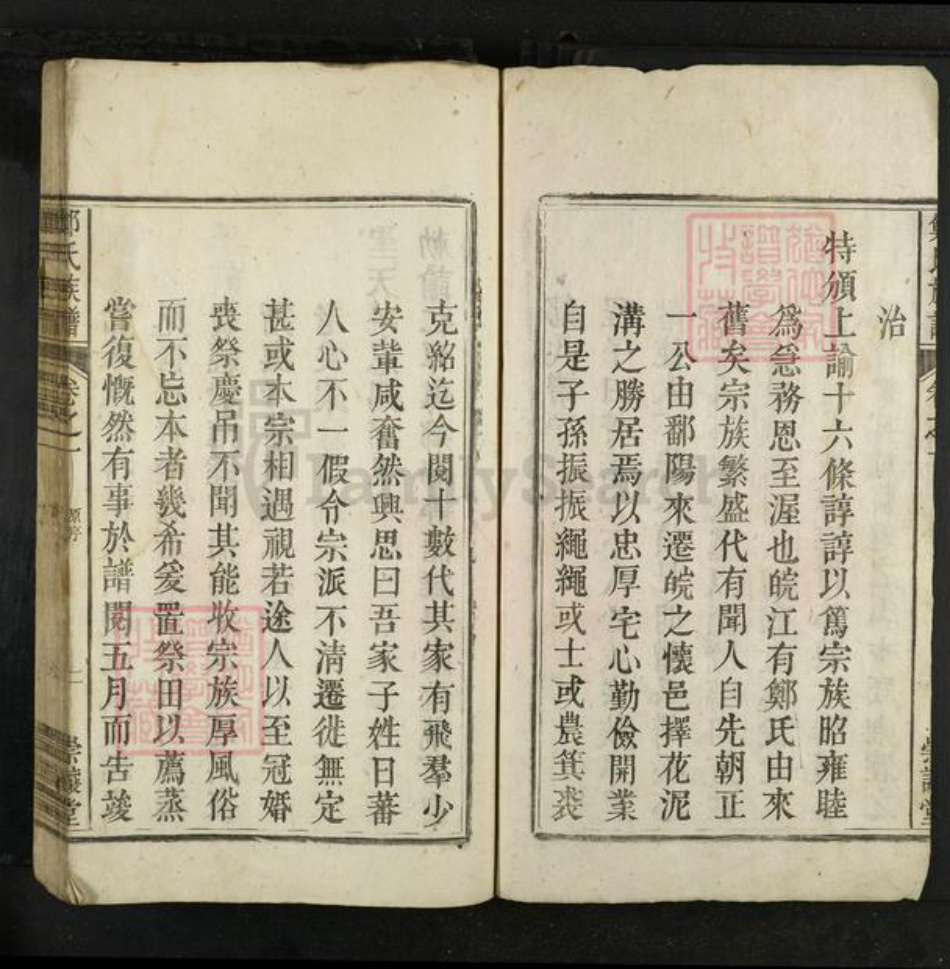 治
特頒上諭十六條諄諄以篤宗族昭雍睦
為急務恩至渥也皖江有鄭氏由來
舊矣宗族繁盛代有聞人自先朝正
一公由鄱陽來遷皖之懷邑擇花泥
溝之勝居焉以忠厚宅心勤儉開業
自是子孫振振繩繩或士或農箕裘
克紹迄今閱十數代其家有飛羣少
安輩咸奮然興思曰吾家子姓日蕃
人心不一假令宗派不清遷徙無定
甚或本宗相遇視若途人以至冠婚
喪祭慶吊不聞其能收宗族厚風俗
而不忘本者幾希爰置祭田以薦蒸
嘗復慨然有事於譜閱五月而告竣
氏族譜
卷之一
原序
堂
FamilySearch